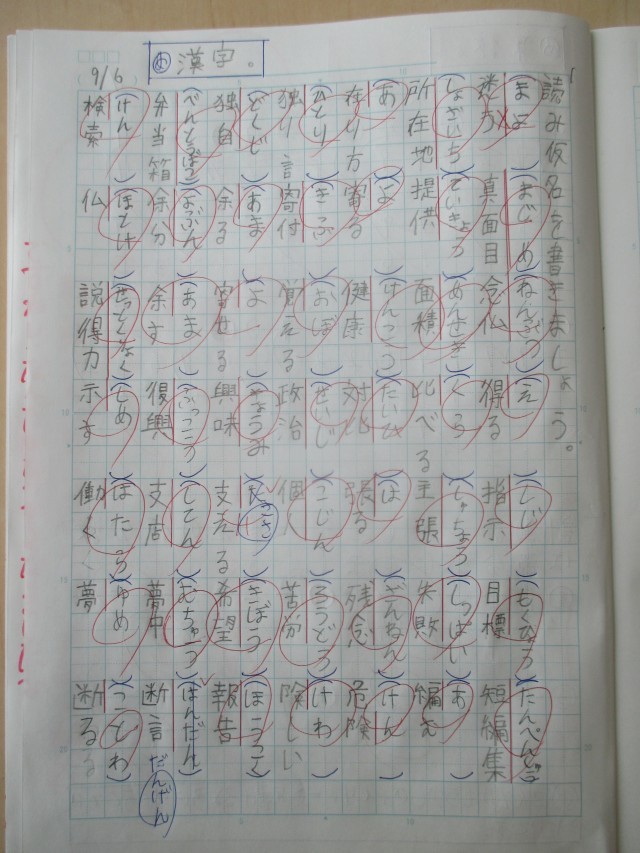 漢字。
9/6
読み仮名を書きましょう。
(まよ)(まじめ)(ねんぶつ)(え)(しじ)(もくひょう)(たんぺん
真面目 念仏 得る 指示 目標 短編集
(しょざいち)(ていきょう)(めんせき)(くら)(しゅちょう)(しっぱい)(あ)
所在地 提供 面積 比べる 主張 失敗 編む
(あ)(よ)(けんこう)(たいひ)(は)(ざんねん)(けん)
在り方 寄る 健康 対比 張る 残念 危険
(ひとり)(きふ)(おぼ)(せいじ)(こじん)(くろう)(けわ)
独り言 寄付 覚える 政治 個人 苦労 険しい
(どくじ)(あま)(よ)(きょうみ)(ささ)(きぼう)(ほうこく)
独自 余る 寄せる 興味 支える 希望 報告
(べんとうばこ)(よぶん)(あま)(ふっこう)(してん)(むちゅう)(はんだん)
弁当箱 余分 余す 復興 支店 夢中 断言 だんげん
(けん)(ほとけ)(せっとくりょく)(しめ)(はたら)(ゆめ)(ことわ)
検索 仏 説得力 示す 働く 夢 断る